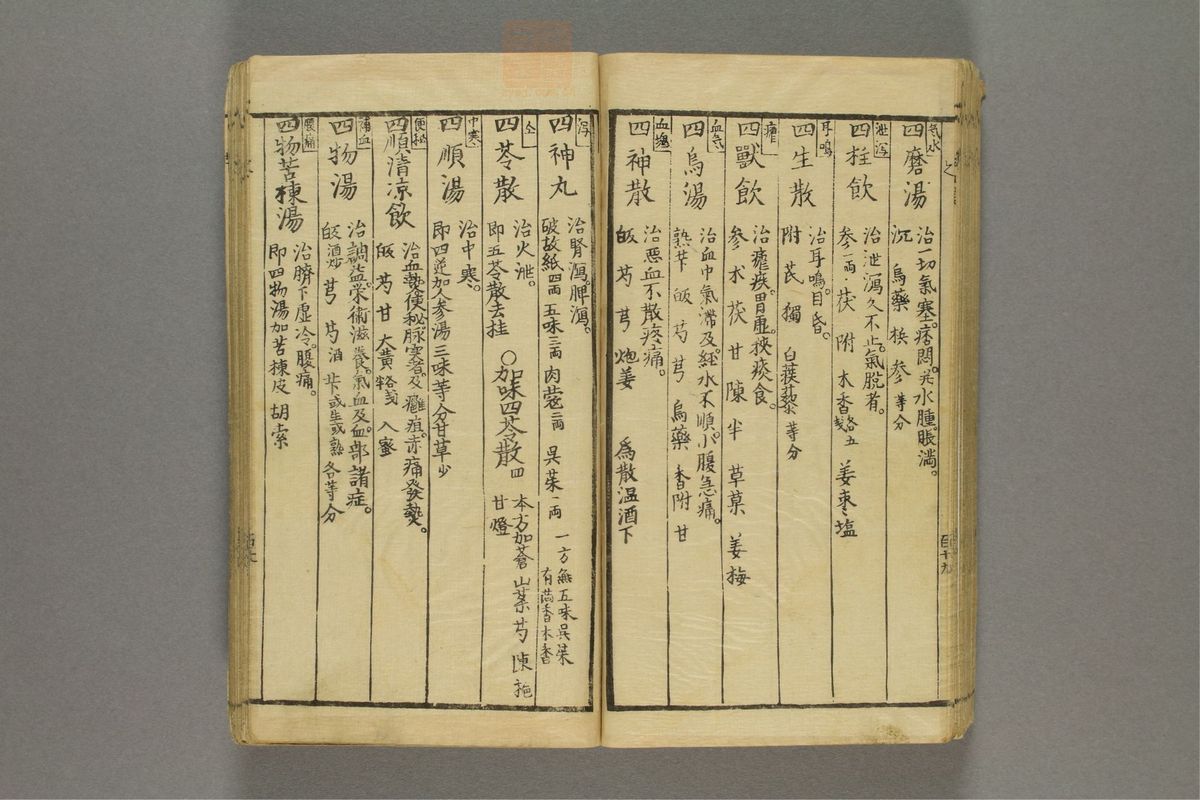 気水
四磨湯
治一切氣塞。痞悶。及水腫。脹満。
沉 烏藥 梹 参 等分
泄泻
四柱飲
治泄瀉久不止。氣脱者。
参一両 茯 附 木香 五 姜 枣 塩
耳鳴
四生散
治耳鳴。目昏。
附 芪 獨 白蒺藜 等分
瘧
四獸飲
治瘧疾。胃虚。挾痰食。
参 朮 茯 甘 陳 半 草菓 姜 梅
血气
四烏湯
治血中氣滞及。経水不順。小腹急痛。
熟芐 皈 芍 芎 烏藥 香附 甘
血塊
四神散
治惡血不散疼痛。
皈 芍 芎 炮姜 為散温酒下
百十九
泻
四神丸
治腎瀉。脾瀉。
破故紙四両 五味三両 肉蔻二両 吳茱一両 一方無五味吳茱
有茴香木香
仝
四苓散
治火泄。
即五苓散去桂
〇加味四苓散 四
本方加蒼 山茱 芍 陳
甘 燈
中寒
四順湯
治中寒。
即四逆加人参湯三味等分甘草少
便秘
四順清凉飲
治血熱便秘。脉実者。及癰疽。赤痛發熱。
皈 芍 甘 大黄 入蜜
補血
四物湯
治調益。栄術滋養。氣血及血部諸症。
皈酒炒 芎 芍酒 芐或生或熟 各等分
腹痛
四物苦楝湯
治臍下虚冷。腹痛。
即四物湯加苦楝皮 胡索